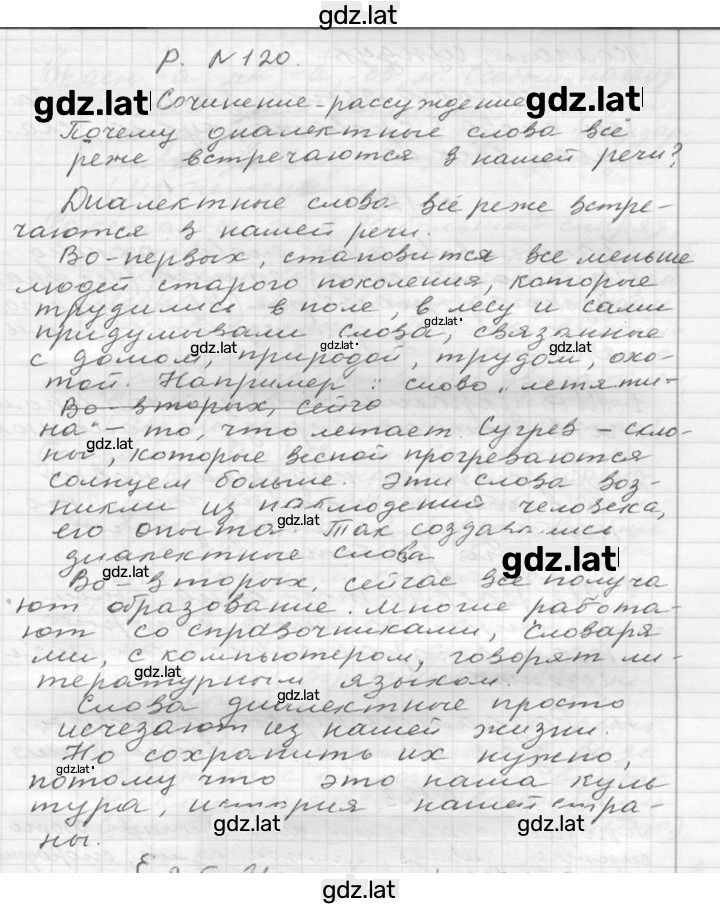 gdz.lat
Р. N120.
gdz.lat Сочинение-рассуждение gdz.lat
Почему диалектные слова всё
реже встречаются в нашей речи?
Диалектные слова всё реже встре-
чаются в нашей речи.
Во-первых, становится все меньше
людей старого поколения, которые
трудились в поле, в лесу и сами
придумывали слова, связанные
gdz.lat
с домом, природой, трудом, охо-
gdz.lat gdz.lat gdz.lat
той. Например: слово „летяти-
Во-вторых, сейчо
на" – то, что летает. Сугрев – скло-
gdz.lat
ны, которые весной прогреваются
солнцем больше. Эти слова воз-
никли из наблюдений человека,
его опыта. Так создавались
gdz.lat
диалектные слова
gdz.lat
Во-вторых, сейчас все получа
gdz.lat
ют образование. Многие работа-
ют со справочниками, словаря
ми, с компьютером, говорят ли-
gdz.lat
тературным языком.
Слова диалектные просто
gdz.lat
исчезают из нашей жизни.
Но сохранить их нужно,
gdz.lat
потому что это наша куль
тура, история нашей стра-
gdz.lat gdz.lat
ны.
gdz.lat